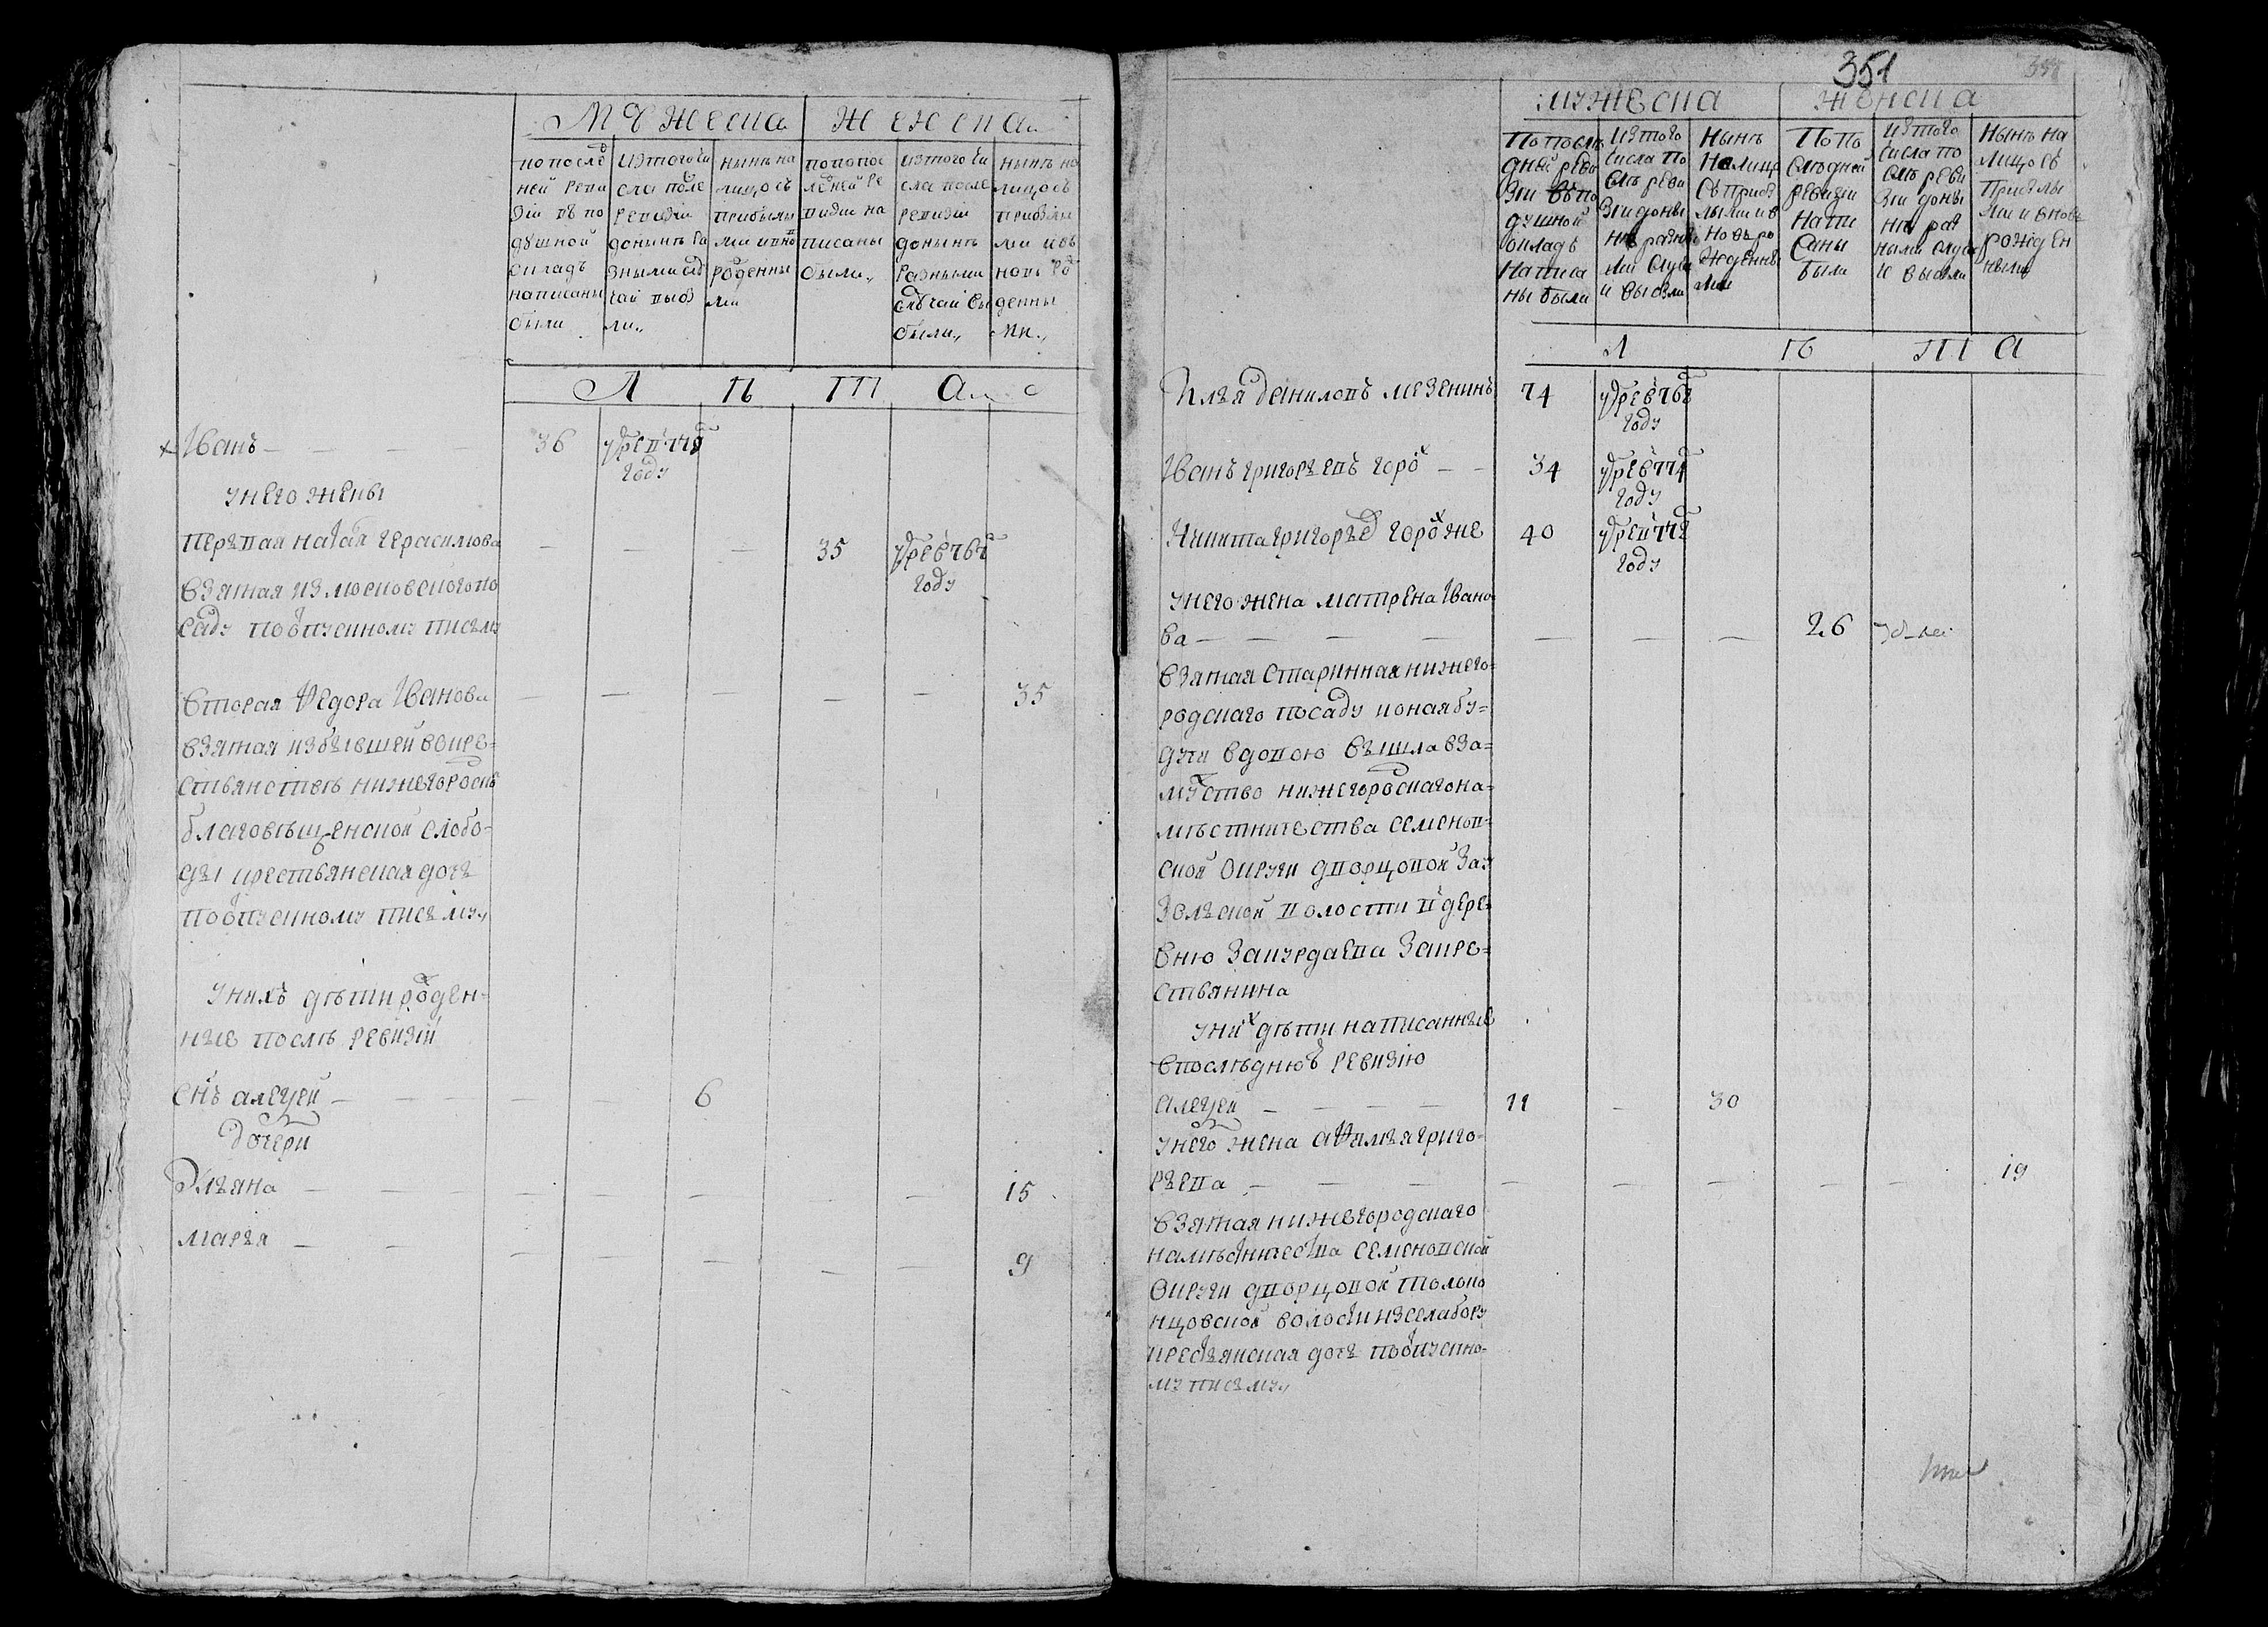 Мужеска Женска
по послед
ней реви
зіи въ по
душной
окладъ
написаны
были
из того чи
сла после
ревизіи
донынѣ ра
зными слу
чаи выбы
ли
нынѣ на
лицо съ
прибылы
ми и вно
рожденны
ми
по по пос
ледней ре
визіи на
писаны
были
из того чи
сла после
ревизіи
донынѣ
разными
случаи вы
были
нынѣ на
лицо съ
прибылы
ми и въ
новь ро
жденны
ми
Л ѣ т а
Іванъ 36
году
у него жены
первая Наталя Герасимова 35
взятая из московского по году
саду по отпускному писму
вторая Ѳедора Іванова 35
взятая из бывшей в кре=
стьянствѣ нижегородской
благовѣщенской слобо=
ды крестьянская дочь
по отпускному писму
у нихъ дѣти рожден=
ные послѣ ревизіи
снъ алеѯей 6
дочери
Ульяна 15
марья 9
351
мужеска женска
По послѣ
дней реви
зіи въ по
душной
окладъ
написа
ны были
из того
числа по
слѣ реви
зіи доны
нѣ разны
ми случа
и выбыли
Нынѣ
на лицо
съ прибы
лыми и в
новь ро
жденны
ми
По по
слѣдней
ревизіи
напи
саны
были
из того
числа по
слѣ реви
зіи доны
нѣ раз
ными случа
и выбыли
Нынѣ на
лицо съ
прибылы
ми и вновь
рожден
ными
Л ѣ т а
Илья Данилопъ мезенинъ 74
году
Іванъ григорьевъ горох 34
году
Никита григорьев горохже 40
году
у него жена матрена Івано
ва 26
взятая старинная нижего=
родскаго посаду и оная бу=
дучи вдовою вышла в за=
мужство нижегородскаго на=
мѣстничества семенов=
ской округи дворцовой Зау
зольской волости в дере=
вню за крe=
стьянина
у них дѣти написанные
в послѣднюю ревизію
алеѯей 11 30
у него жена григо=
рьева 19
взятая нижегородскаго
намѣстничества семеновской
округи дворцовой толоко
нцовской волости из села бору
крестьянская дочь по отпускно=
му писму